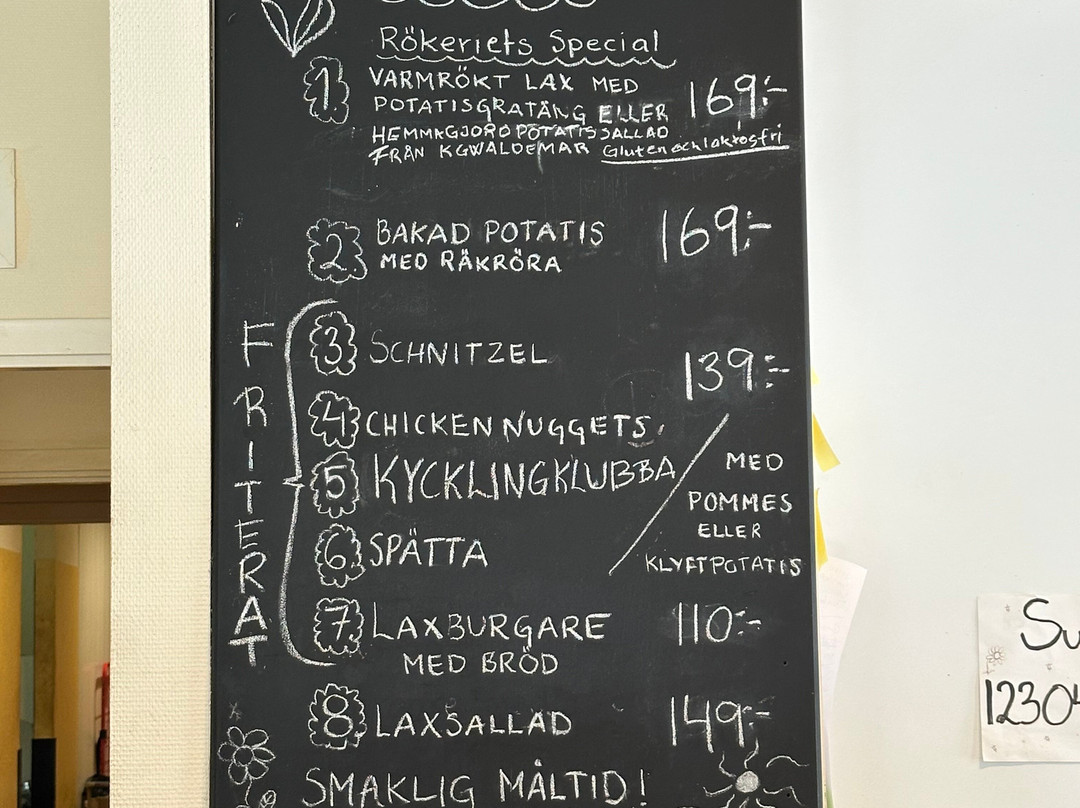 Rökeriets Special
1. VARMRÖKT LAX MED
POTATISGRATÄNG ELLER 169:-
HEMMAGJORD POTATISSALLAD
FRÅN KGWALDEMAR Gluten och laktosfri
2. BAKAD POTATIS 169:-
MED RÄKRÖRA
FRITERAT
3. SCHNITZEL 139:-
4. CHICKEN NUGGETS.
5. KYCKLINGKLUBBA
6. SPÄTTA
MED
POMMES
ELLER
KLYFTPOTATIS
7. LAXBURGARE 110:-
MED BRÖD
8. LAXSALLAD 149:-
SMAKLIG MÅLTID!
1230